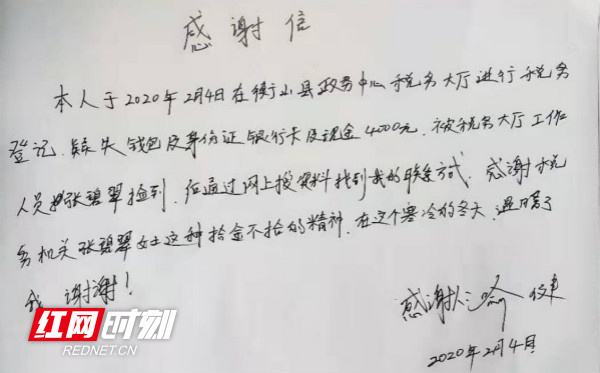 感谢信
本人于2020年2月4日在衡山县政务中心税务大厅进行税务
登记、遗失钱包及身份证银行卡及现金4000元、被税务大厅工作
人员张碧翠捡到、后通过网上搜资料找到我的联系方式、感谢税
务机关张碧翠女士这种拾金不拾的精神、在这个寒冷的冬天、温暖了
我 谢谢!
感谢人:
2020年2月4日
红网时刻
REDNET.CN